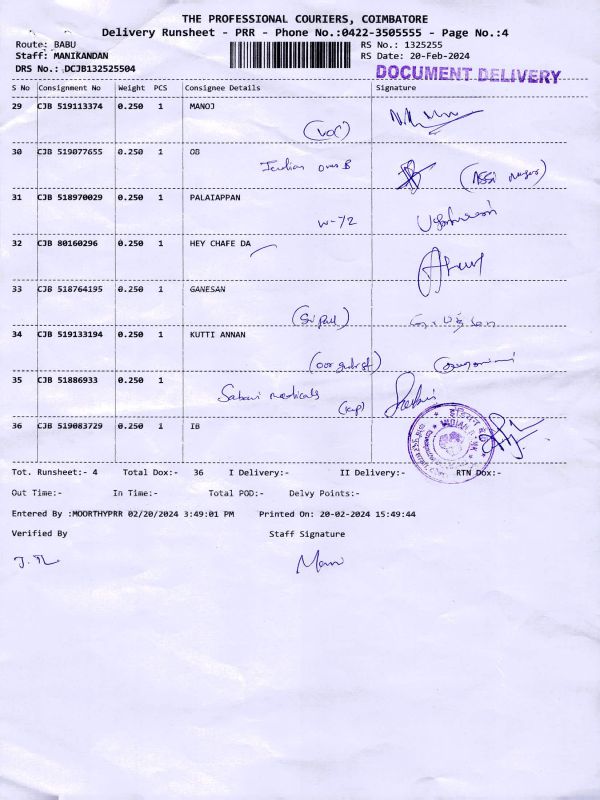 THE PROFESSIONAL COURIERS, COIMBATORE
Delivery Runsheet - PRR - Phone No.:0422-3505555 - Page No.:4
Route: BABU
RS No.: 1325255
Staff: MANIKANDAN
RS Date: 20-Feb-2024
DRS No.: DCJB132525504
DOCUMENT DELIVERY
S No Consignment No Weight PCS Consignee Details Signature
29 CJB 519113374 0.250 1 MANOJ
(VOC)
30 CJB 519077655 0.250 1 OB
Indian B
31 CJB 518970029 0.250 1 PALAIAPPAN
W-72
32 CJB 80160296 0.250 1 HEY CHAFE DA
33 CJB 518764195 0.250 1 GANESAN
34 CJB 519133194 0.250 1 KUTTI ANNAN
35 CJB 51886933 0.250 1
Sabari medicals
36 CJB 519083729 0.250 1 IB
INDIAN BANK
Tot. Runsheet:- 4 Total Dox:- 36 I Delivery:- II Delivery:- RTN Dox:-
Out Time:- In Time:- Total POD:- Delvy Points:-
Entered By :MOORTHYPRR 02/20/2024 3:49:01 PM Printed On: 20-02-2024 15:49:44
Verified By Staff Signature
Mani